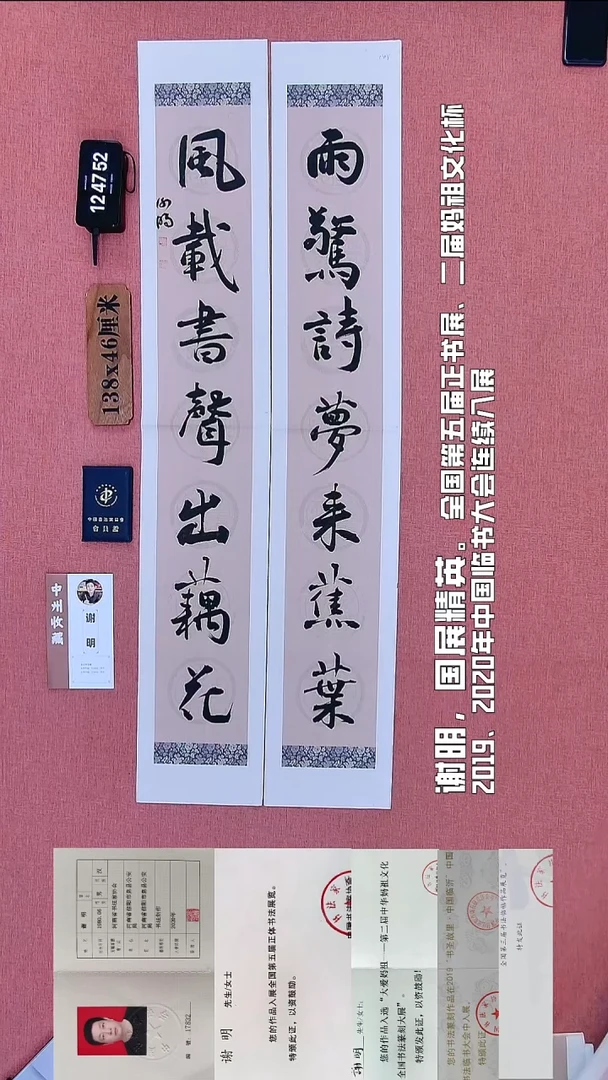 雨驚詩夢来蕉葉
風載書聲出藕花
谢明
谢明，国展精英。全国第五届正书展、二届妈祖文化杯
2019、2020年中国临书大会连续入展
124752
138x46厘米
谢
明
谢 明 先生/女士
您的作品入展全国第五届正体书法展览。
特颁此证，以资鼓励。
谢明 先生/女士：
您的作品入选“大爱妈祖——第二届中华妈祖文化
全国书法篆刻大展”。
特颁发此证，以资鼓励！
您的书法篆刻作品在2019“书圣故里·中国临沂”中国
书法临书大会中入展，
特颁此证
特发此证